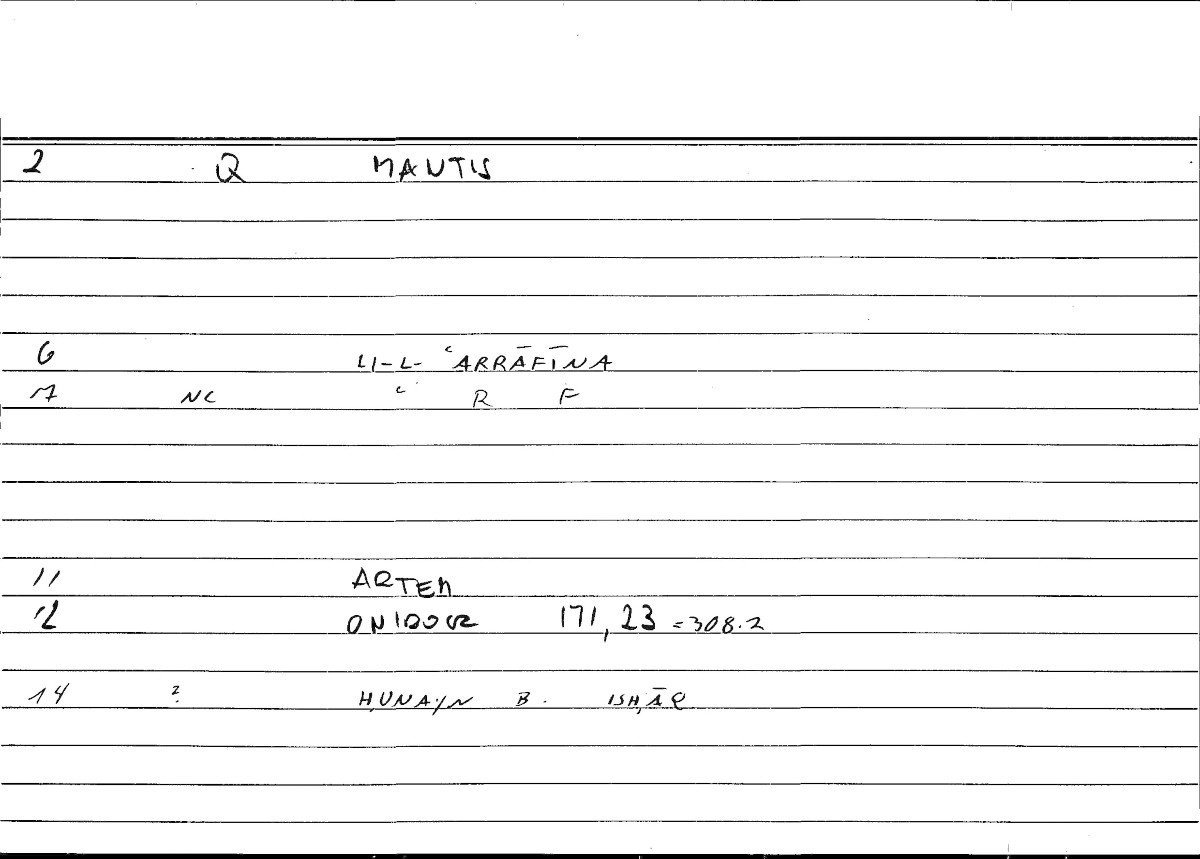 2 Q MANTIS
6 LI-L- ʿARRĀFĪNA
7 NC ʿ R F
11 ARTEM
12 ONIROCR 171, 23 = 308.2
14 2 ḤUNAYN B. ISḤĀQ